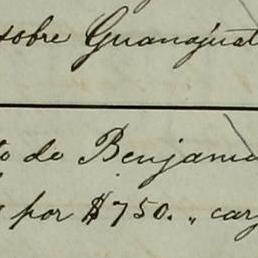 sobre Guanajuat
to de Benjami
por $750. „ carg